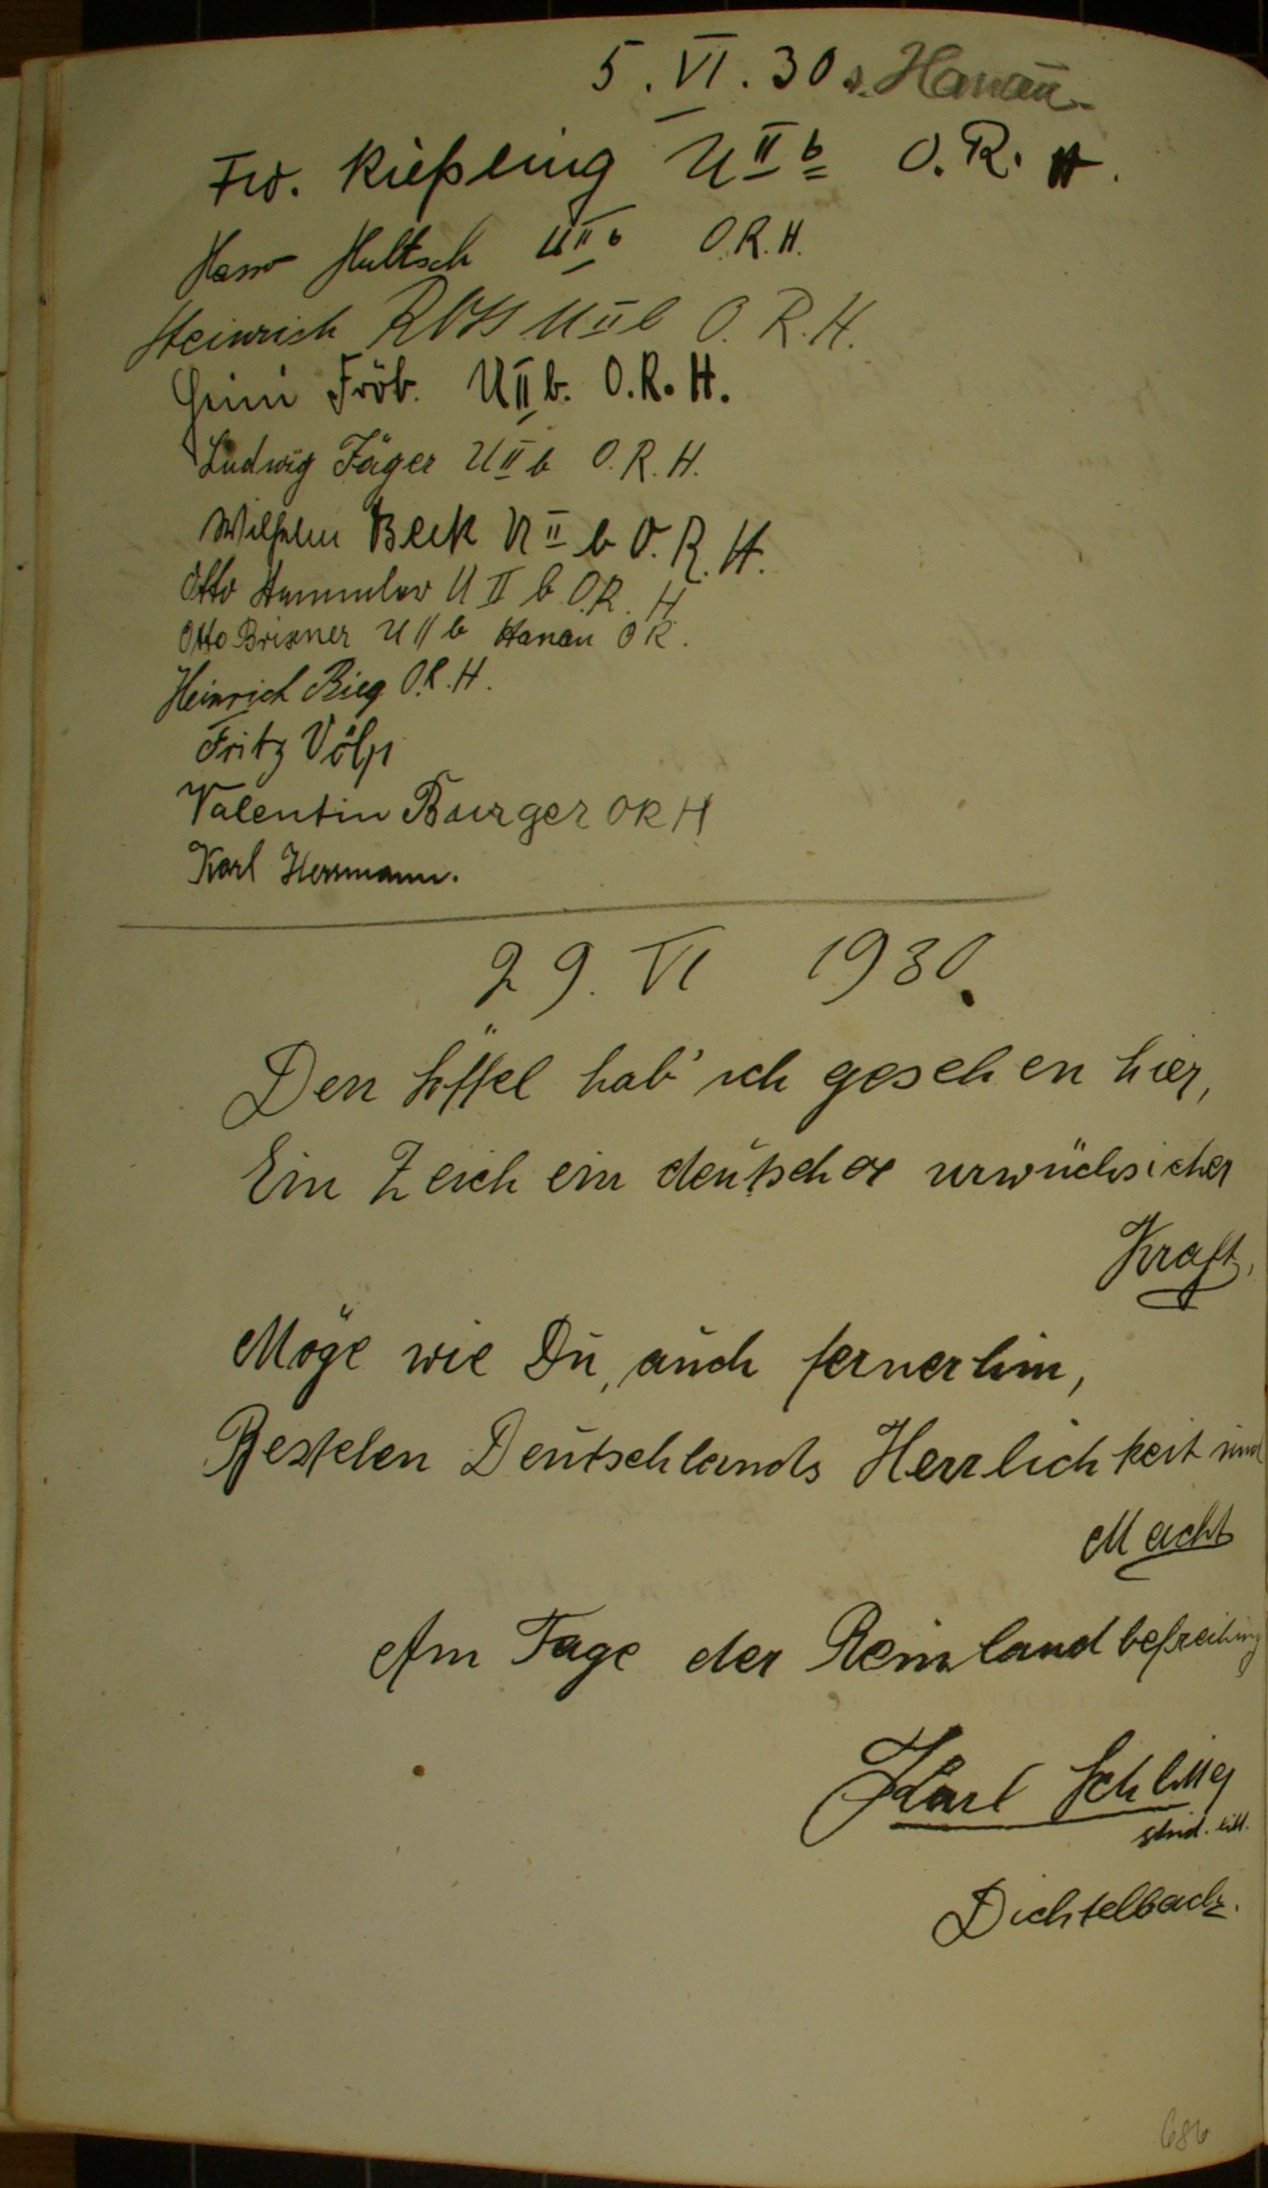 5. VI. 30. Hanau
Frd. Kießling U II b O. R. H.
Hans Hultsch U II b O.R.H.
Heinrich Ross U II b O. R. H.
Heini Fröb. U II b. O. R. H.
Ludwig Jäger U II b O. R. H.
Wilhelm Beck U II b O. R. H.
Otto Hammeler U II b O.R. H
Otto Brixner U II b Hanau O R.
Heinrich Bieg O.R. H.
Fritz Völp
Valentin Burger O R H
Karl Herrmann.
29. VI 1930.
Den Löffel hab' ich gesehen hier,
Ein Zeich ein deutscher urwüchsicher
Kraft,
Möge wie Du, auch fernerhin,
Bestehen Deutschlands Herrlichkeit und
Macht
Am Tage der Reinlandbefreihung
Karl
stud.
Dichtelbach.
686